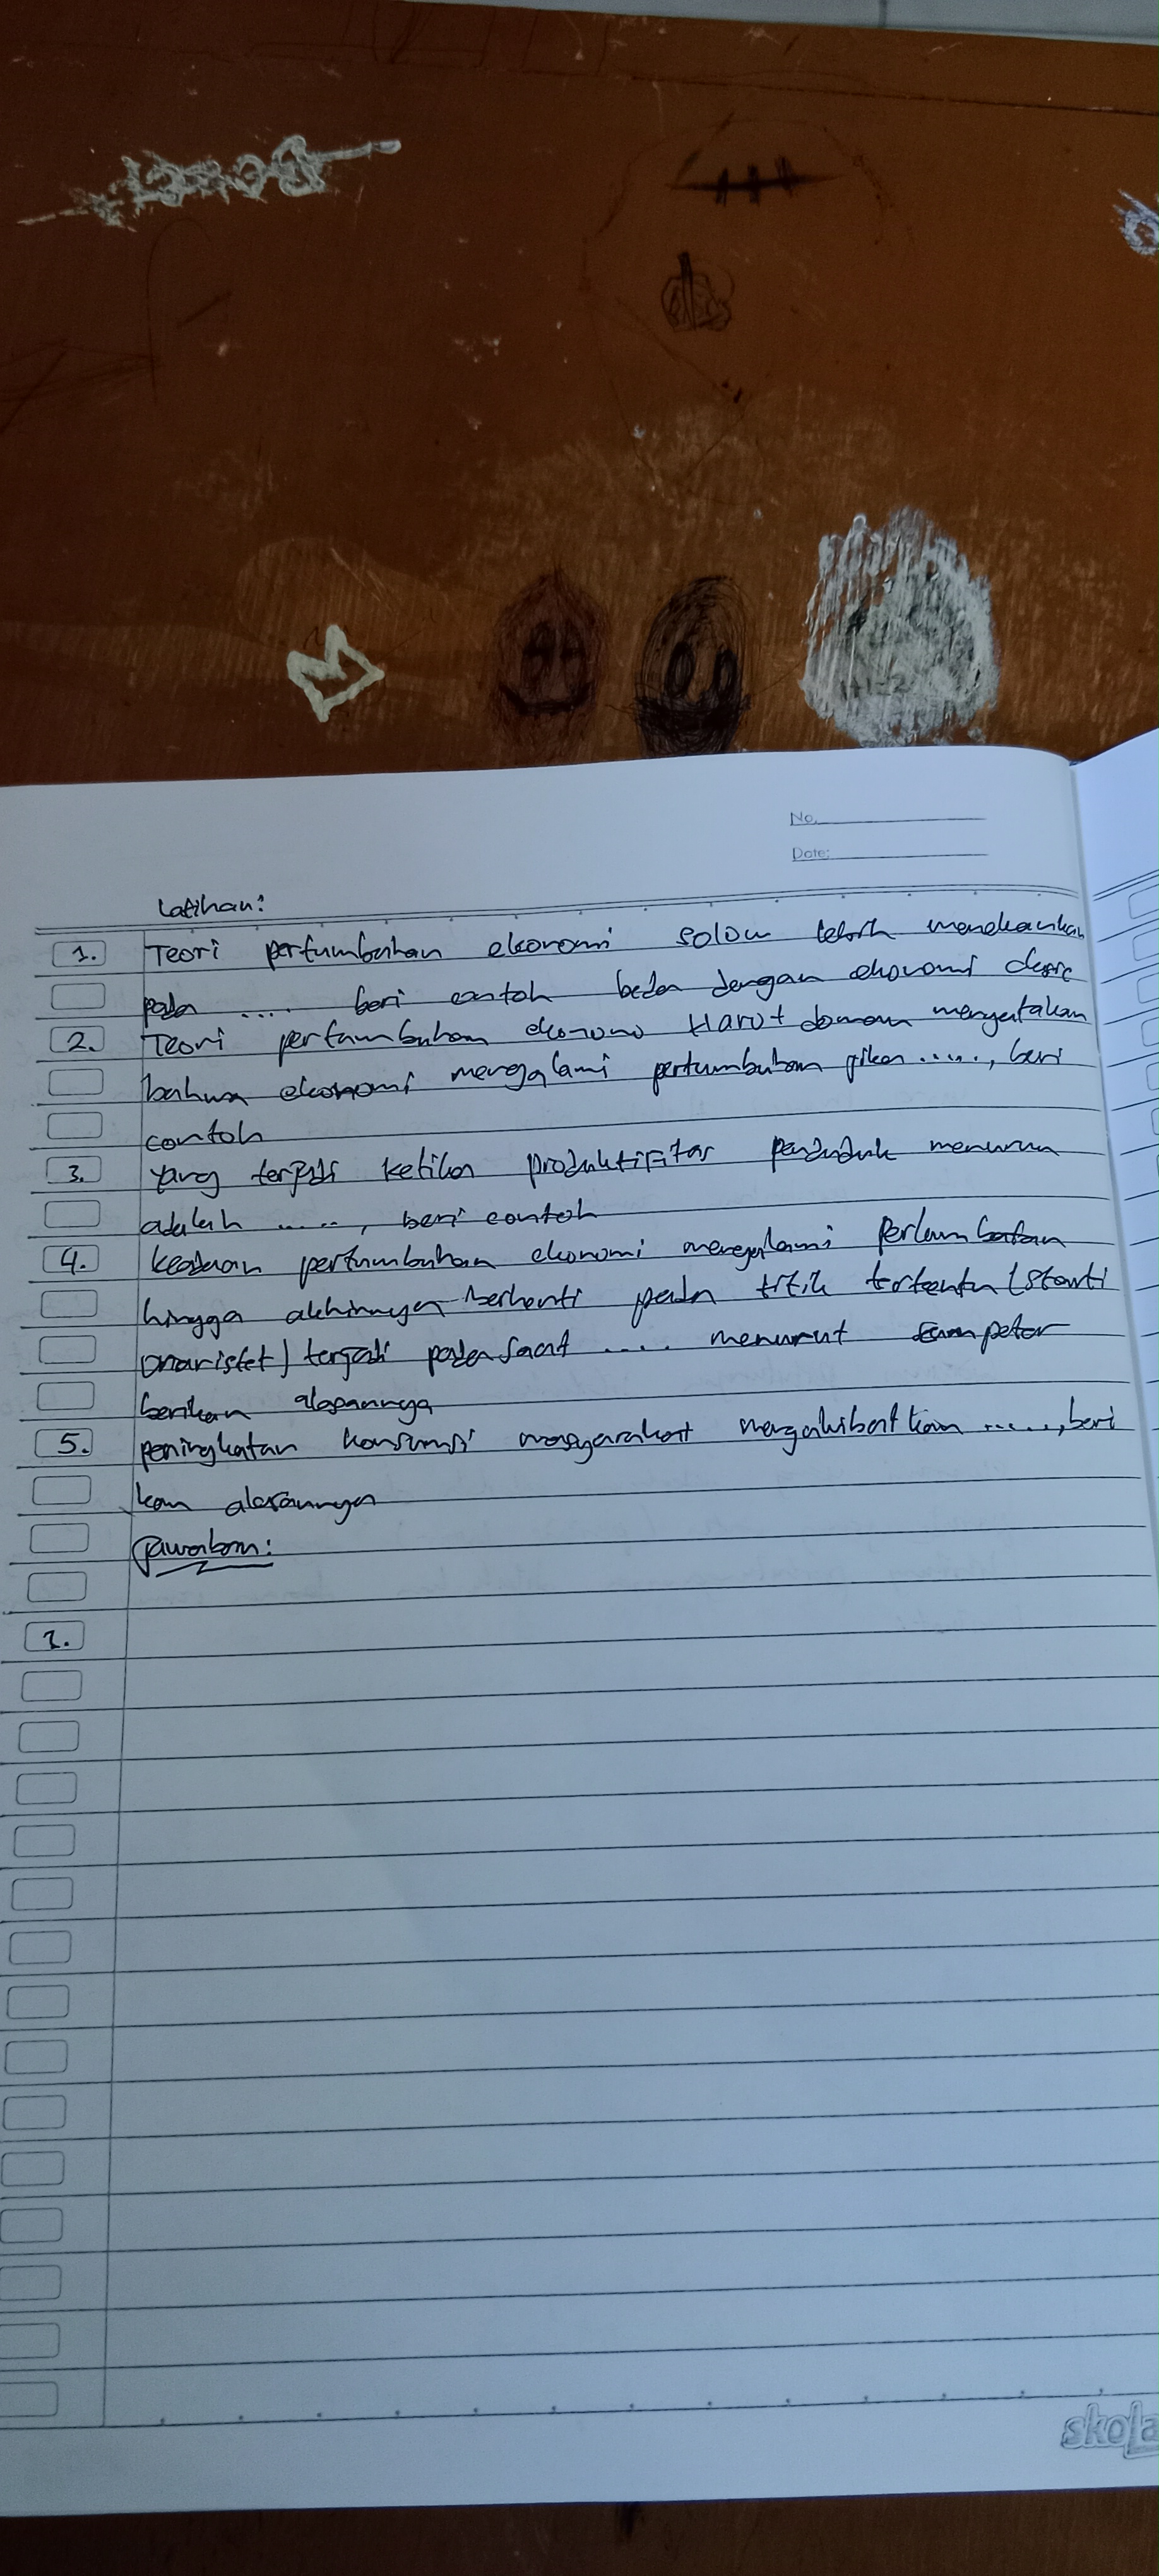 No.
Date:
Latihan:
1. Teori pertumbuhan ekonomi solow lebih menekankan
pada .... beri contoh beda dengan ekonomi
2. Teori pertumbuhan ekonomo Harot domar mengatakan
bahwa ekonomi mengalami pertumbuhan jika ......, beri
contoh
3. yang terjadi ketika produktifitas penduduk menurun
adalah ......, beri contoh
4. keadaan pertumbuhan ekonomi mengalami perlambatan
hingga akhirnya berhenti pada titik tertentu (stasi
onaristet) terjadi pada saat .... menurut
berikan alasannya
5. peningkatan konsumsi masyarakat mengakibatkan ......, beri
kan alasannya
Jawaban:
1.
skola